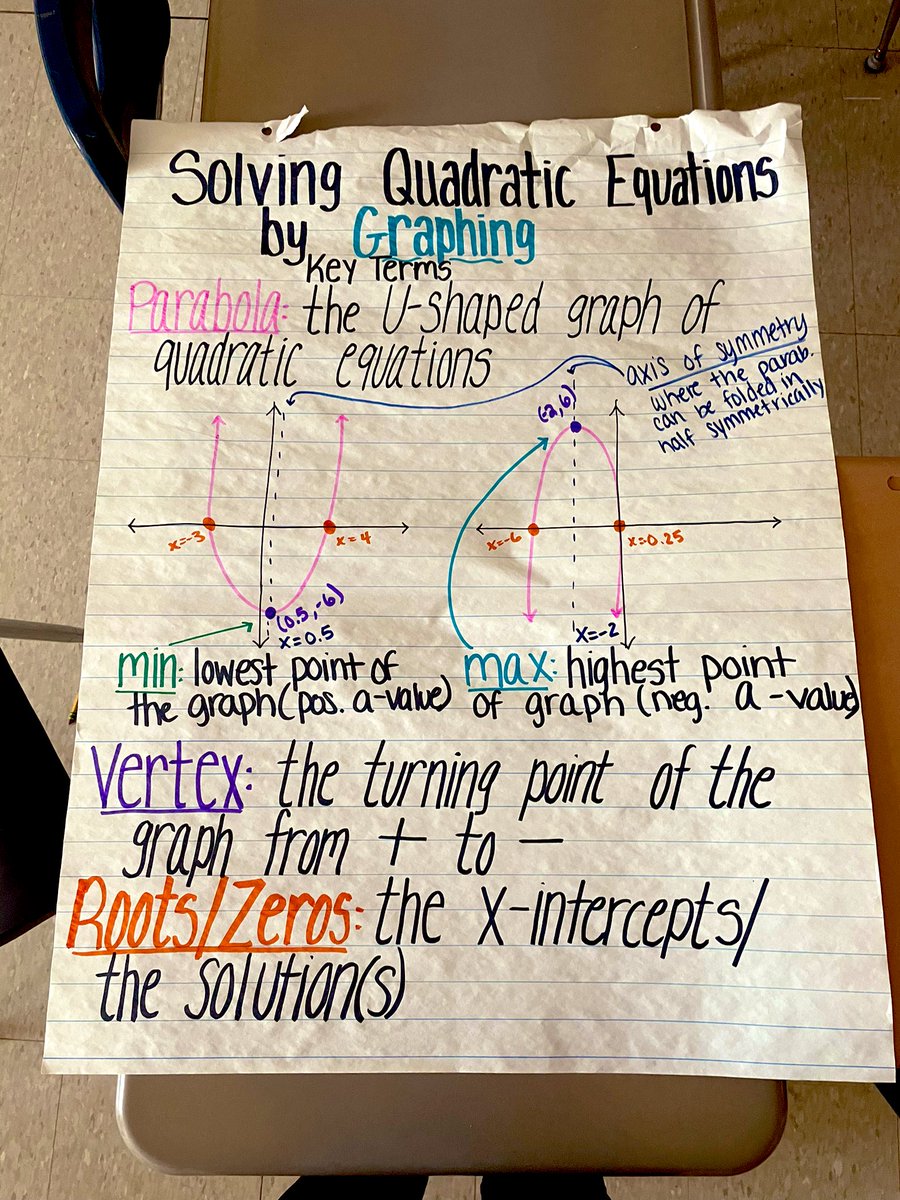 Solving Quadratic Equations
by Graphing
Key Terms
Parabola: the U-shaped graph of
quadratic equations
axis of symmetry
where the parab.
can be folded in
half symmetrically
(-2,6)
x=-3
x=4
x=-6
x=0.25
(0.5,-6)
x=0.5
x=-2
min: lowest point of
the graph (pos. a-value)
max: highest point
of graph (neg. a-value)
Vertex: the turning point of the
graph from + to -
Roots/Zeros: the x-intercepts/
the solution(s)